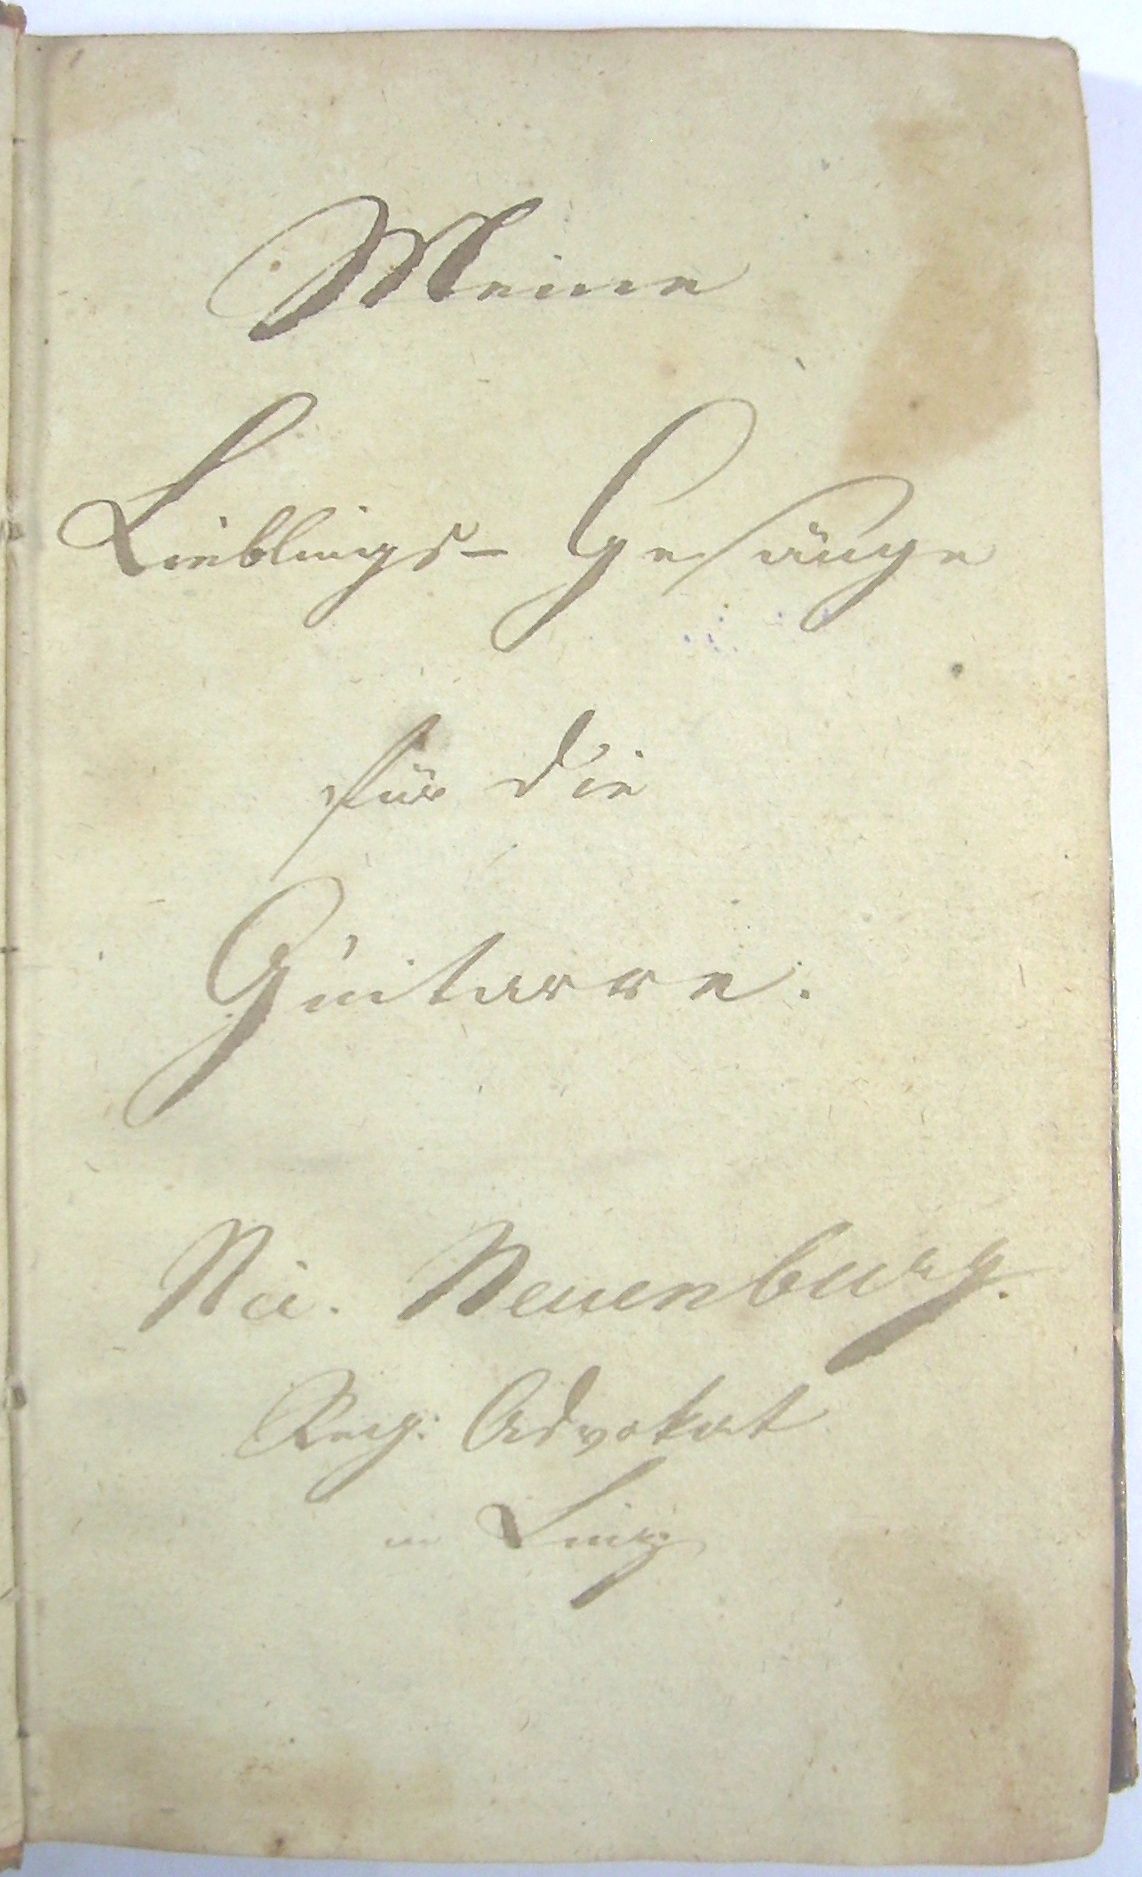 Meine
Lieblings- Gesänge
für die
Guitarre.
Nic. Neuenburg.
Reg: Advokat
in Linz